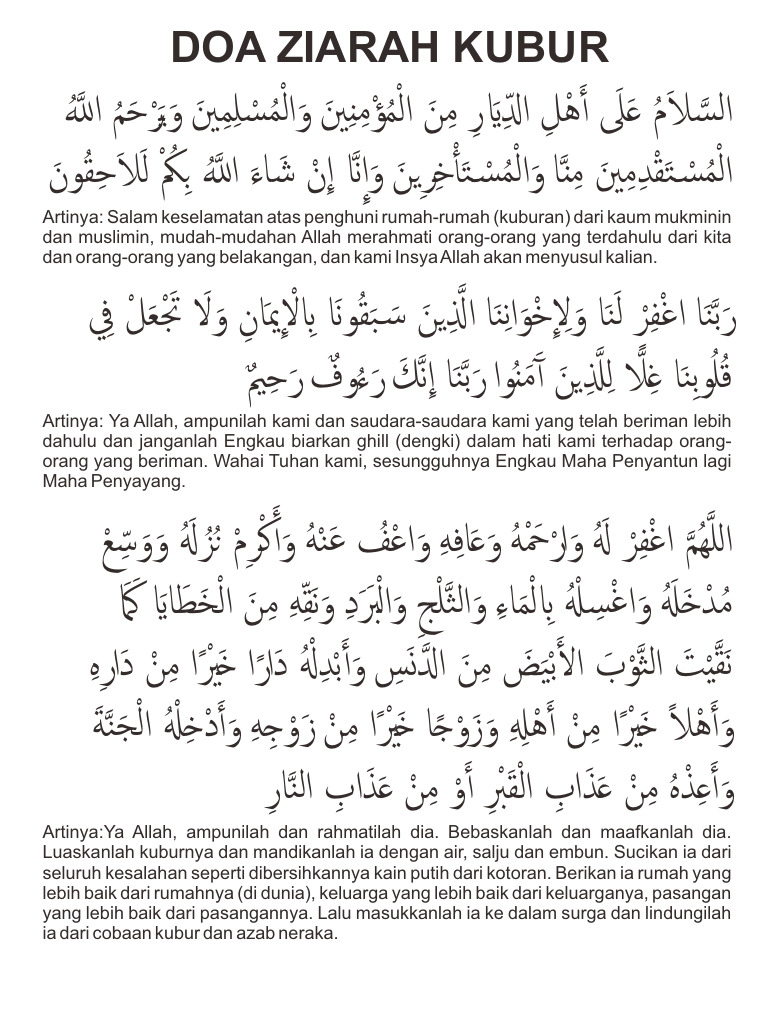 DOA ZIARAH KUBUR
السَّلاَمُ عَلَى أَهْلِ الدِّيَارِ مِنَ الْمُؤْمِنِينَ وَالْمُسْلِمِينَ وَيَرْحَمُ اللَّهُ
الْمُسْتَقْدِمِينَ مِنَّا وَالْمُسْتَأْخِرِينَ وَإِنَّا إِنْ شَاءَ اللَّهُ بِكُمْ لَلاَحِقُونَ
Artinya: Salam keselamatan atas penghuni rumah-rumah (kuburan) dari kaum mukminin
dan muslimin, mudah-mudahan Allah merahmati orang-orang yang terdahulu dari kita
dan orang-orang yang belakangan, dan kami Insya Allah akan menyusul kalian.
رَبَّنَا اغْفِرْ لَنَا وَلِإِخْوَانِنَا الَّذِينَ سَبَقُونَا بِالْإِيمَانِ وَلَا تَجْعَلْ فِي
قُلُوبِنَا غِلًّا لِلَّذِينَ آَمَنُوا رَبَّنَا إِنَّكَ رَءُوفٌ رَحِيمٌ
Artinya: Ya Allah, ampunilah kami dan saudara-saudara kami yang telah beriman lebih
dahulu dan janganlah Engkau biarkan ghill (dengki) dalam hati kami terhadap orang-
orang yang beriman. Wahai Tuhan kami, sesungguhnya Engkau Maha Penyantun lagi
Maha Penyayang.
اللَّهُمَّ اغْفِرْ لَهُ وَارْحَمْهُ وَعَافِهِ وَاعْفُ عَنْهُ وَأَكْرِمْ نُزُلَهُ وَوَسِّعْ
مُدْخَلَهُ وَاغْسِلْهُ بِالْمَاءِ وَالثَّلْجِ وَالْبَرَدِ وَنَقِّهِ مِنَ الْخَطَايَا كَمَا
نَقَّيْتَ الثَّوْبَ الأَبْيَضَ مِنَ الدَّنَسِ وَأَبْدِلْهُ دَارًا خَيْرًا مِنْ دَارِهِ
وَأَهْلاً خَيْرًا مِنْ أَهْلِهِ وَزَوْجًا خَيْرًا مِنْ زَوْجِهِ وَأَدْخِلْهُ الْجَنَّةَ
وَأَعِذْهُ مِنْ عَذَابِ الْقَبْرِ أَوْ مِنْ عَذَابِ النَّارِ
Artinya:Ya Allah, ampunilah dan rahmatilah dia. Bebaskanlah dan maafkanlah dia.
Luaskanlah kuburnya dan mandikanlah ia dengan air, salju dan embun. Sucikan ia dari
seluruh kesalahan seperti dibersihkannya kain putih dari kotoran. Berikan ia rumah yang
lebih baik dari rumahnya (di dunia), keluarga yang lebih baik dari keluarganya, pasangan
yang lebih baik dari pasangannya. Lalu masukkanlah ia ke dalam surga dan lindungilah
ia dari cobaan kubur dan azab neraka.